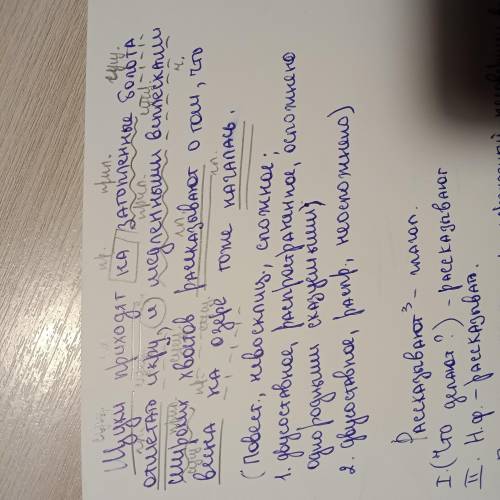 Щуки приходят на затопленные болота
отметать икру, и медленными всплесками
широких хвостов рассказывают о том, что
весна на озере тоже началась.
(Повест., невосклиц., сложное:
1. двусоставное, распространенное, осложнено
однородными сказуемыми)
2. двусоставное, распр, неосложнено)
Рассказывают³ - глагол.
I. (Что делают?) - рассказывают
II. Н.ф. - рассказывать.